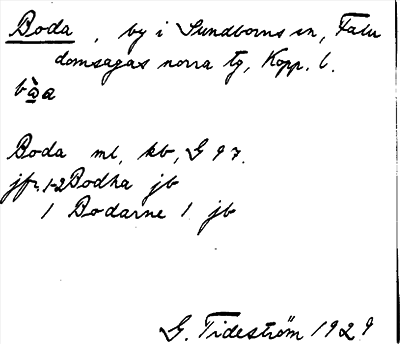 Boda, by i Sundborns sn, Falu
domsagas norra tg, Kopp. l.
bòa
Boda ml, kb, G 97.
jfr 1-2 Bodha jb
1 Bodarne 1 jb
G. Tideström 1929